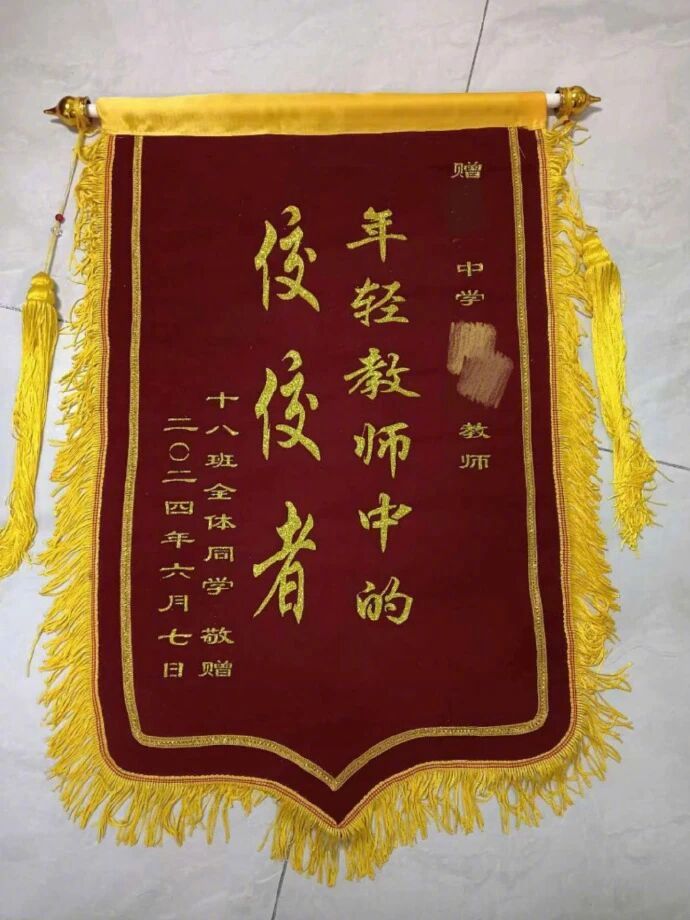 赠
中学
教师
年轻教师中的
佼佼者
十八班全体同学 敬赠
二〇二四年六月七日